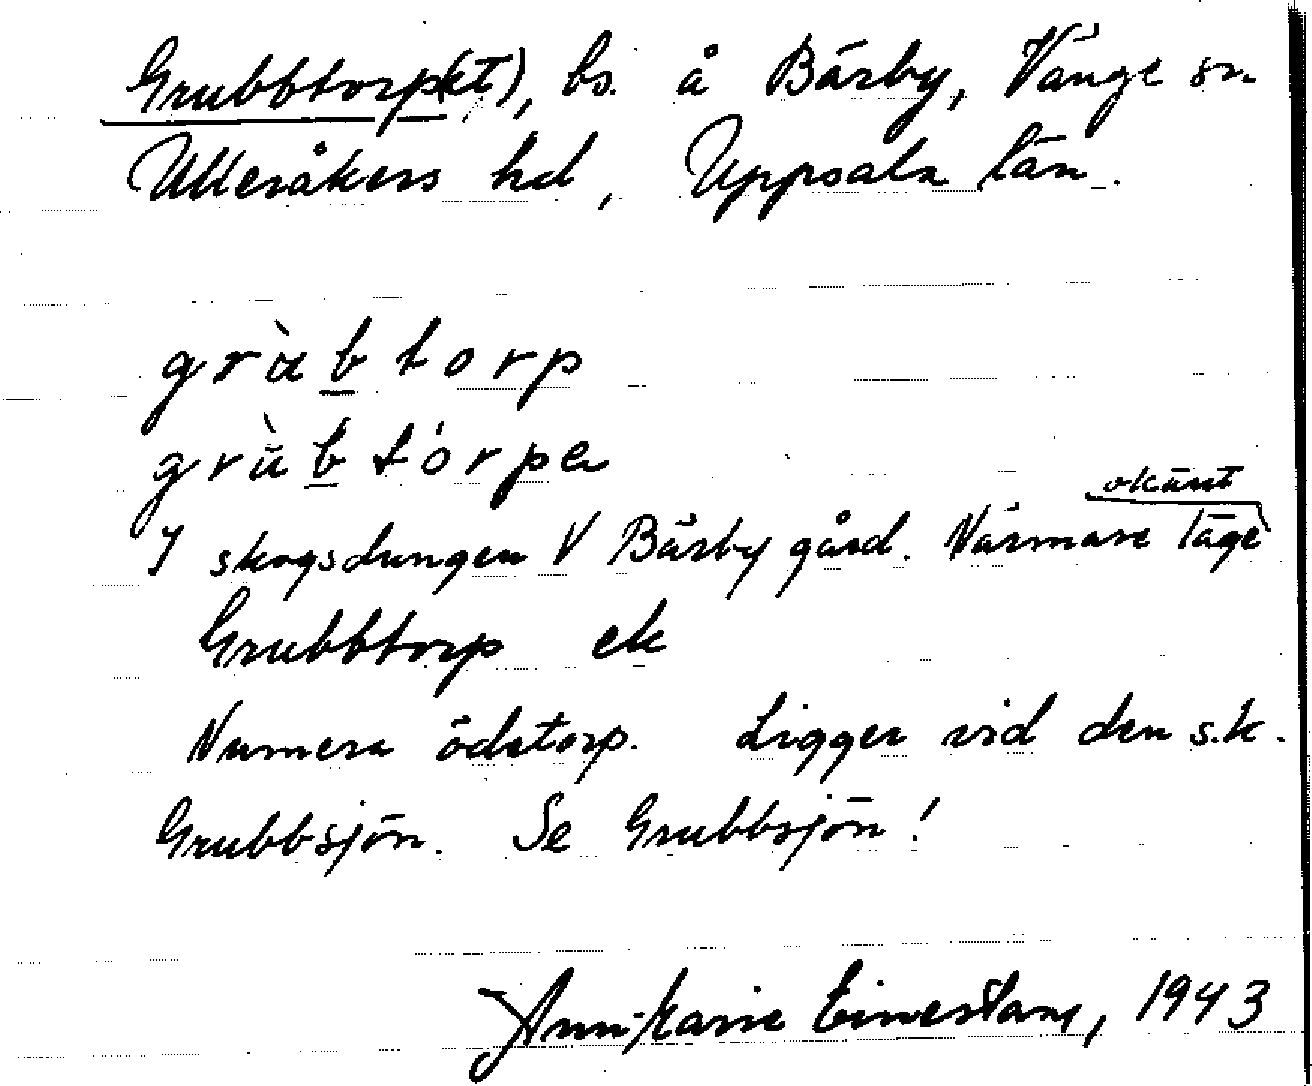 Grubbtorp(et), bs. å Bärby, Vänge sn
Ulleråkers hd, Uppsala län.
grùbtorp
grùbtórpa
I skogsdungen V Bärby gård. Närmare läge okänt
Grubbtorp ek
Numera ödetorp. Ligger vid den s.k.
Grubbsjön. Se Grubbsjön!
Ann-Marie 1943